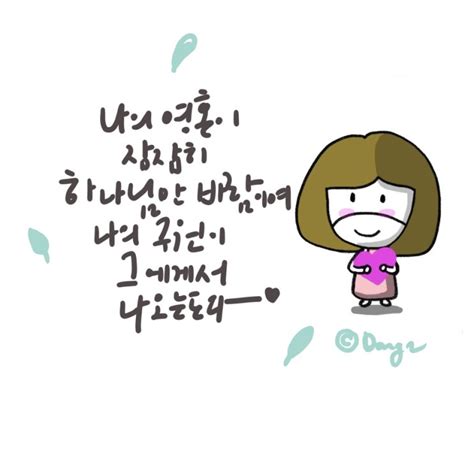 나의 영혼이
잠잠히
하나님만 바람이여
나의 구원이
그에게서
나오는도다